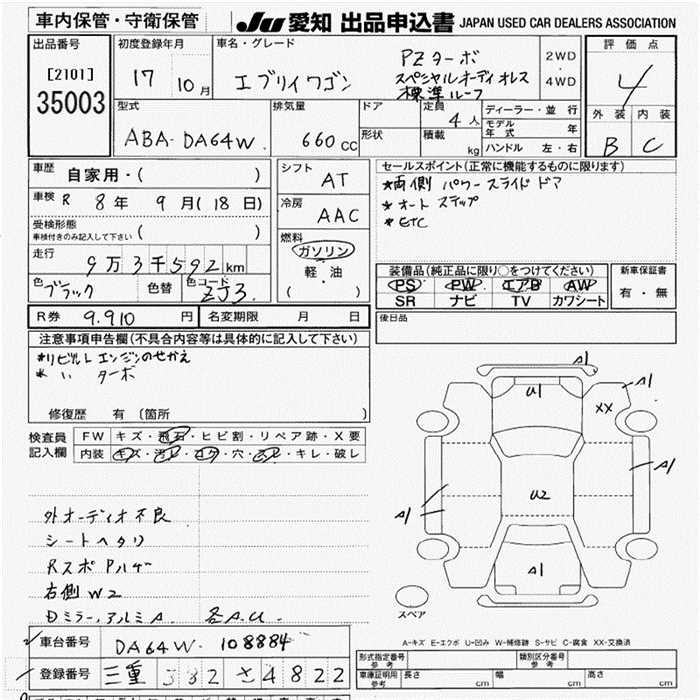 車内保管・守衛保管
JU 愛知 出品申込書 JAPAN USED CAR DEALERS ASSOCIATION
出品番号
[2101]
35003
初度登録年月
17 10月
車名・グレード
エブリイワゴン
PZターボ
スペシャルオーディオレス
標準ルーフ
2WD
・
4WD
評価点
4
外装 内装
B C
型式
ABA-DA64W
排気量
660 CC
ドア
形状
定員
4人
積載
kg
ディーラー・並行
モデル年式 年
ハンドル 左・右
車歴
自家用・( )
車検 R 8年 9月(18日)
受検形態
車検付きのみ記入して下さい ( )
走行
9万3千592km
色 ブラック 色替 色コード ZJ3
シフト AT
冷房 AAC
燃料
ガソリン
軽・油
( )
セールスポイント(正常に機能するものに限ります)
*両側 パワースライドドア
*オートステップ
*ETC
装備品(純正品に限り○をつけてください)
PS PW エアB AW
SR ナビ TV カワシート
新車保証書
有・無
R券 9.910 円 名変期限 月 日
後日品
注意事項申告欄(不具合内容等は具体的に記入して下さい)
*リビルトエンジンのせかえ
* 〃 ターボ
修復歴 有 〔箇所 〕
検査員
記入欄
FW キズ・飛石・ヒビ割・リペア跡・X要
内装 キズ・汚レ・コゲ・穴・スレ・キレ・破レ
外オーディオ不良
シートヘタリ
右側W2
ミラー,アルミA 各A.U
A1
U1
A1
XX
A1
U2
A1
A1
スペア
A-キズ E-エクボ U-凹み W-補修跡 S-サビ C-腐食 XX-交換済
車台番号 DA64W-108884
登録番号 三重 582 さ4822
形式指定番号
参考
類別区分番号
参考
車庫証明用
参考
長さ cm 幅 cm 高さ cm